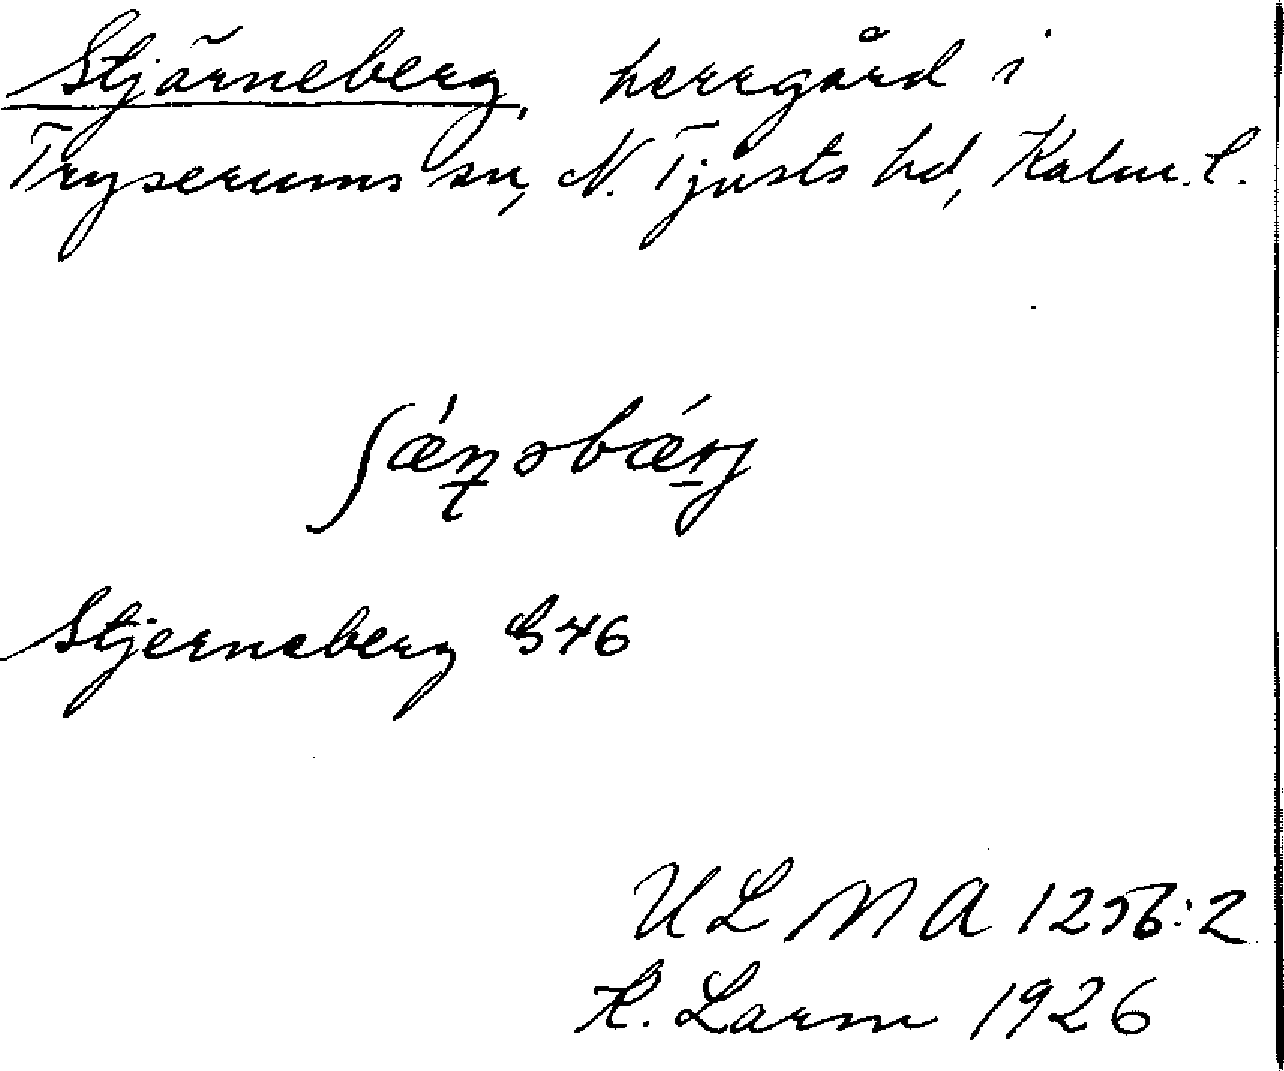 Stjärneberg, herrgård i
Tryserums sn, N. Tjusts hd, Kalm. l.
ʃæ̀ṇəbærj
Stjerneberg G46
ULMA 1256:2
K. Larm 1926